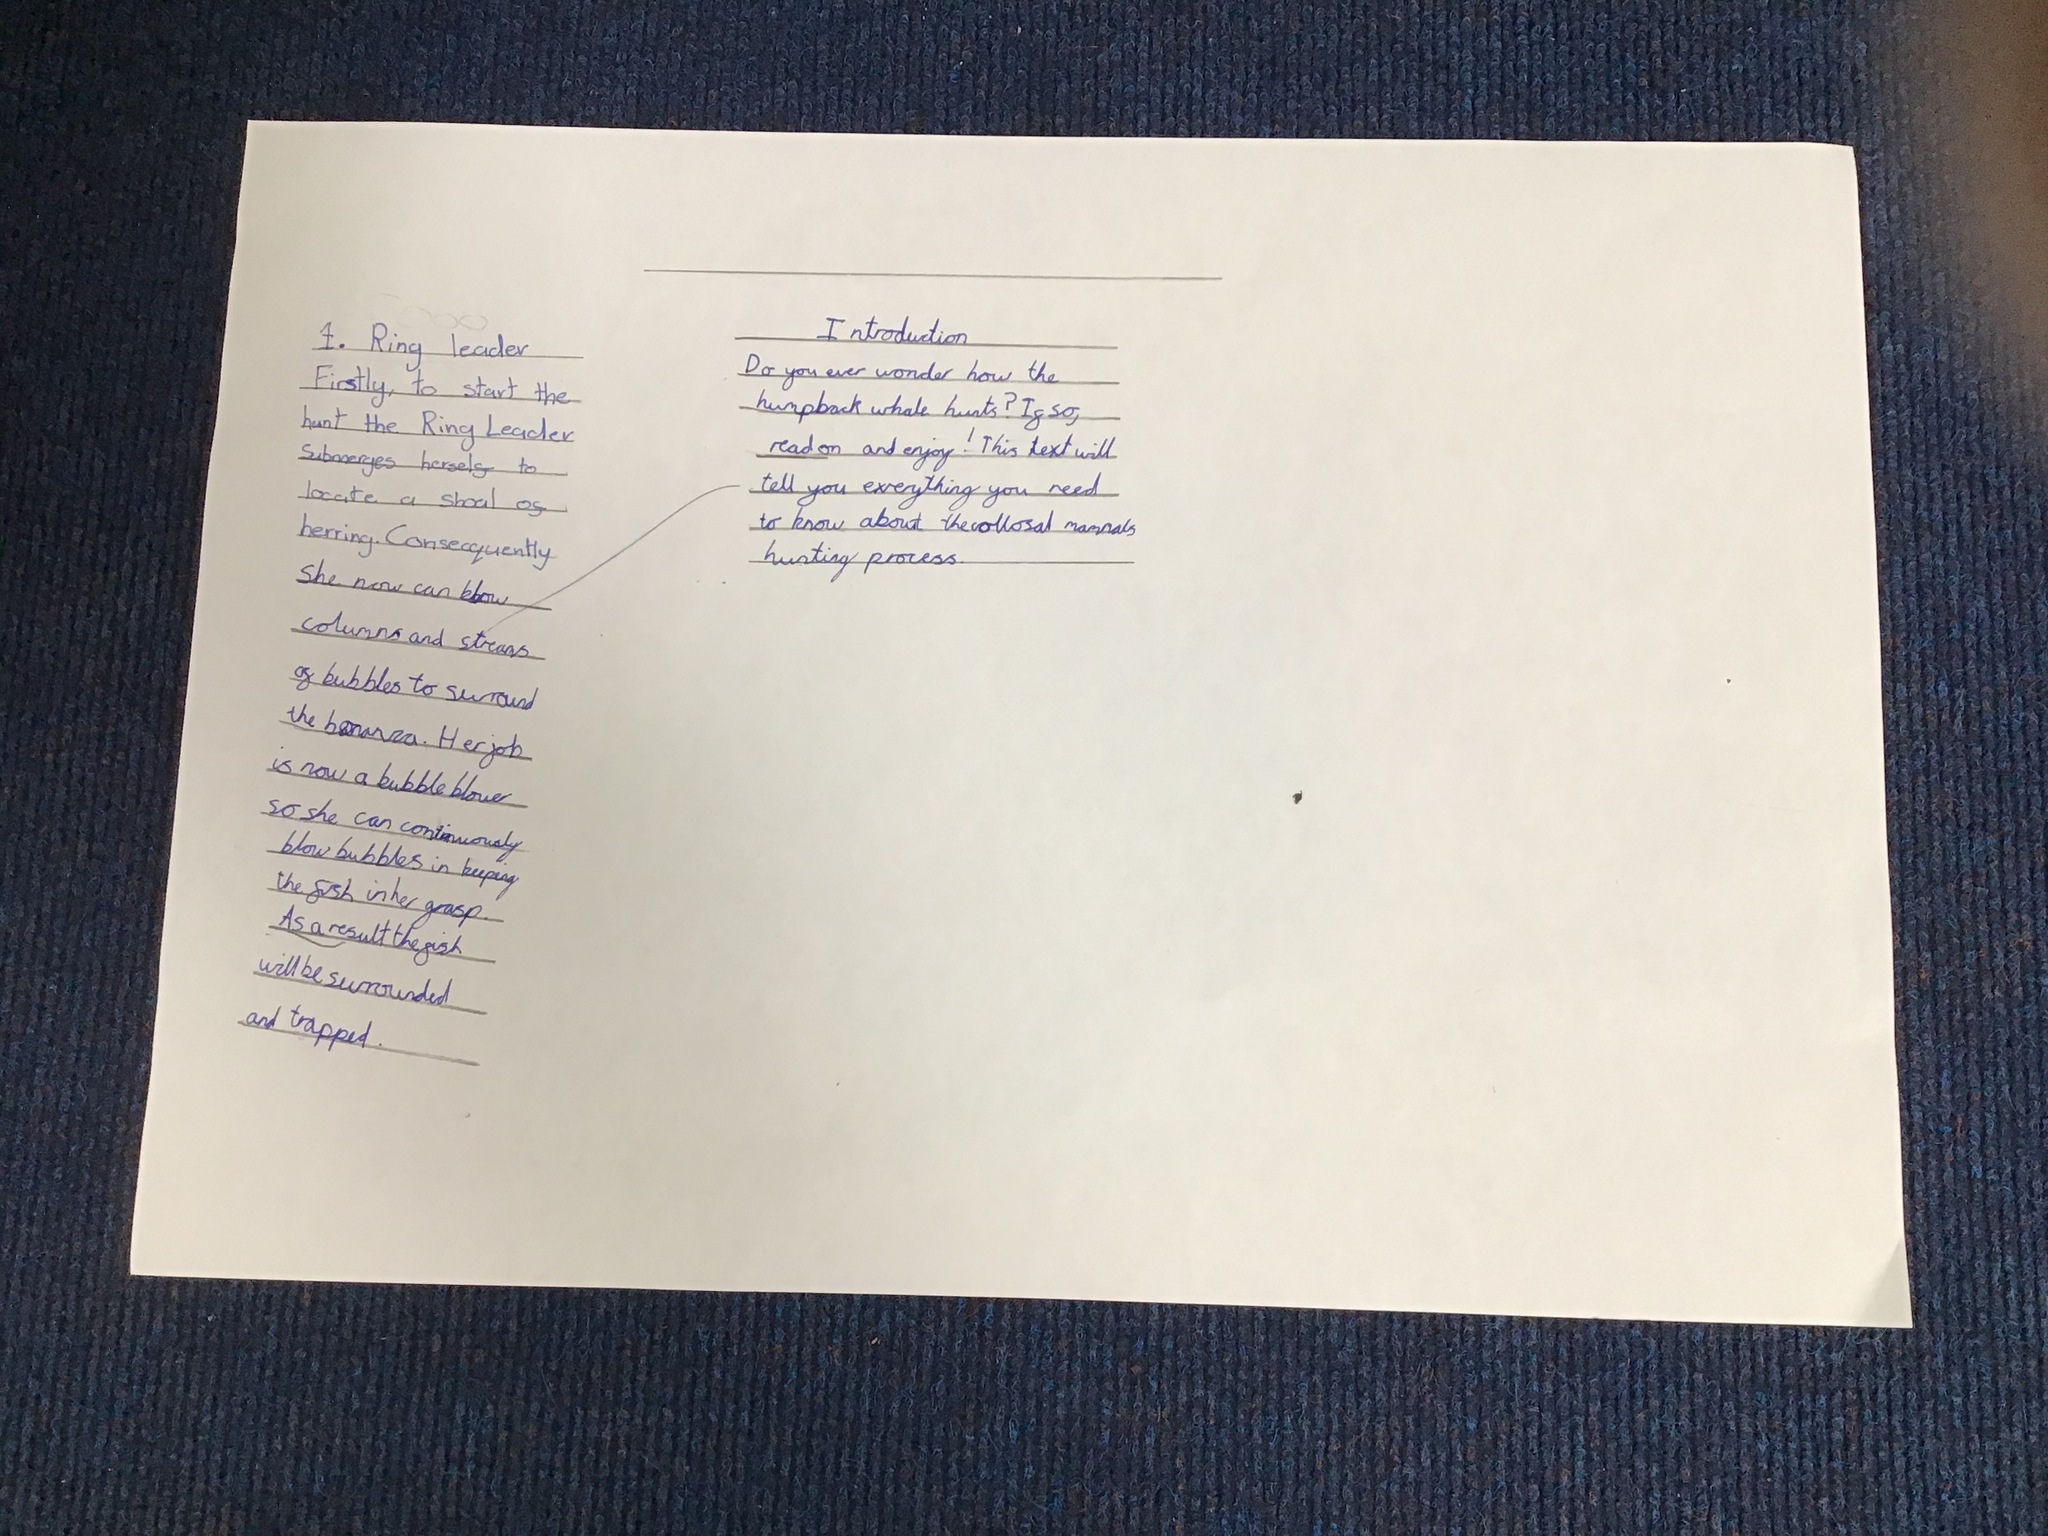 Introduction
Do you ever wonder how the
humpback whale hunts? If so,
read on and enjoy! This text will
tell you exerything you need
to know about the collosal mammals
hunting process.
1. Ring leader
Firstly, to start the
hunt the Ring Leader
submerges herself to
locate a shoal of
herring. Consecquently
she now can blow
columns and streans
of bubbles to surround
the bonanza. Her job
is now a bubble blower
so she can continuously
blow bubbles in keeping
the fish in her grasp.
As a result the fish
will be surrounded
and trapped.